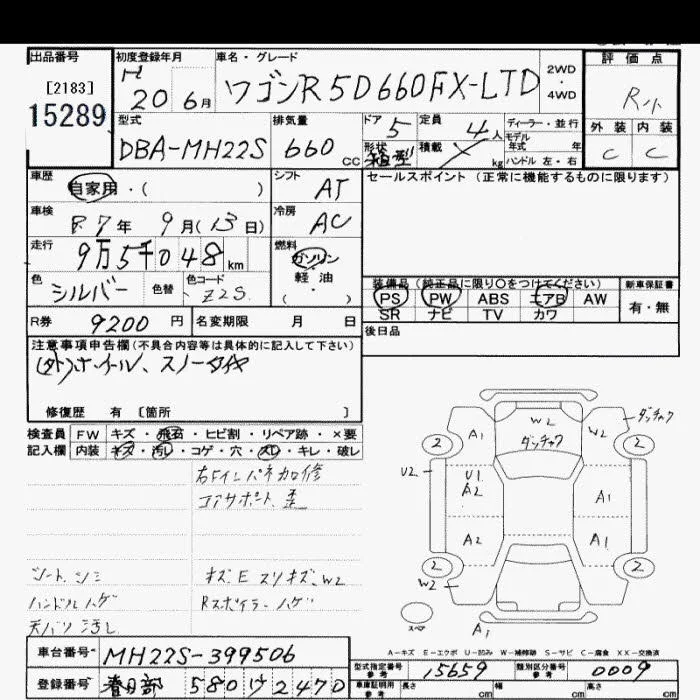 出品番号
[2183]
15289
初度登録年月
H 20年 6月
車名・グレード
ワゴンR 5D660FX-LTD
2WD
4WD
評価点
R小
外装 内装
C C
型式
DBA-MH22S
排気量
660 CC
ドア 5
形状 箱型
定員 4人
積載 kg
ディーラー・並行
モデル
年式 年
ハンドル 左・右
車歴
自家用・( )
シフト
AT
セールスポイント (正常に機能するものに限ります)
車検
R7年 9月(13日)
冷房
AC
走行
9万5千048 km
燃料
ガソリン
軽油
( )
色
シルバー
色替
色コード
Z2S
装備品 (純正品に限り○をつけてください)
PS PW ABS エアB AW
SR ナビ TV カワ
新車保証書
有・無
R券 9200円
名変期限 月 日
後日品
注意事項申告欄(不具合内容等は具体的に記入して下さい)
(外)ホイール、スノータイヤ
修復歴 有 [箇所 ]
検査員
記入欄
FW キズ・飛石・ヒビ割・リペア跡・×要
内装 キズ・汚レ・コゲ・穴・スレ・キレ・破レ
右Fインパネ加修
コアサポート歪
シート、シミ
ハンドルハゲ
天バリ汚し
キズ、E スリキズ、W2
Rスポイラーハゲ
ダッチャク
A1 W2 W2
ダッチャク
2 2
U2 U1
A2 A1
A2 A1
2 2
W2
スペア
A1
A-キズ E-エクボ U-凹み W-補修跡 S-サビ C-腐食 XX-交換済
車台番号 MH22S-399506
登録番号 春日部 580 け 2470
型式指定番号
参考
15659
類別区分番号
参考
0009
車庫証明用
参考
長さ cm 幅 cm 高さ cm